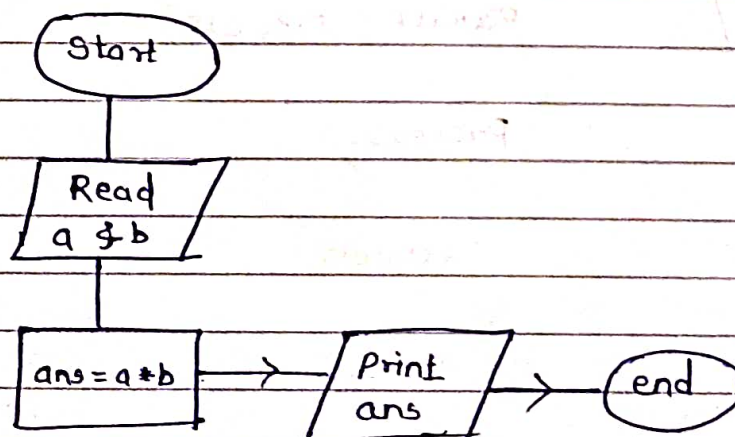 Start
Read
a & b
ans = a * b
Print
ans
end